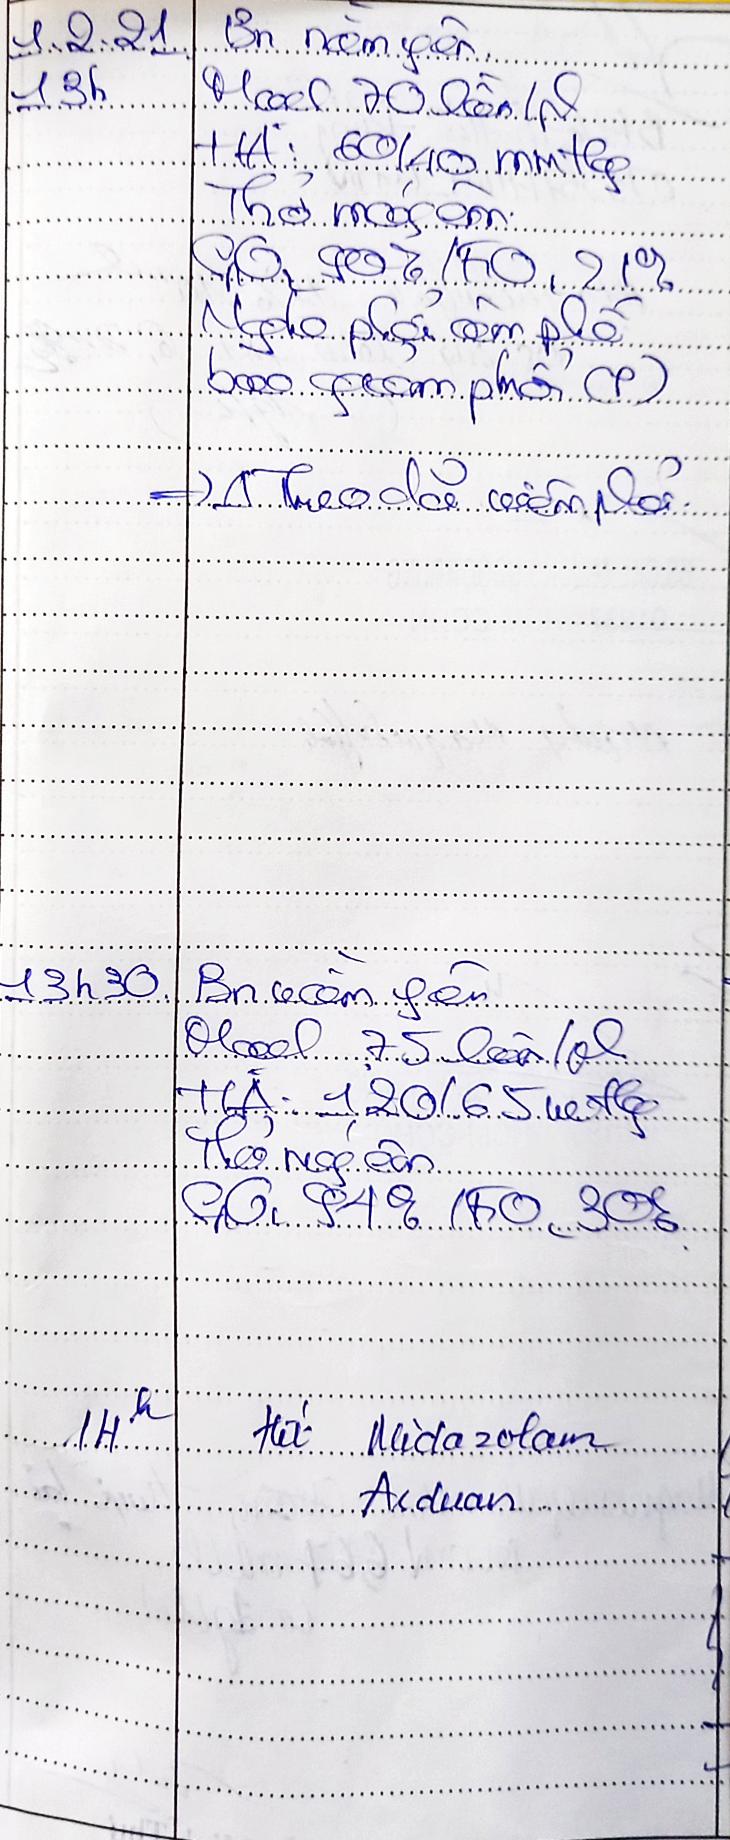 1.2.21 Bn nằm yên.
13h Mạch 70 lần/ph
HA: 60/40 mmHg
Thở máy êm.
SpO2 90% / FiO2 21%
Nghe phổi âm phế
bào giảm phổi (P)
=> Δ Theo dõi viêm phổi.
13h30 Bn nằm yên
Mạch 75 lần/ph
HA: 120/65 mmHg
Thở máy êm
SpO2 94% / FiO2 30%
14h Hết Midazolam
Arduan